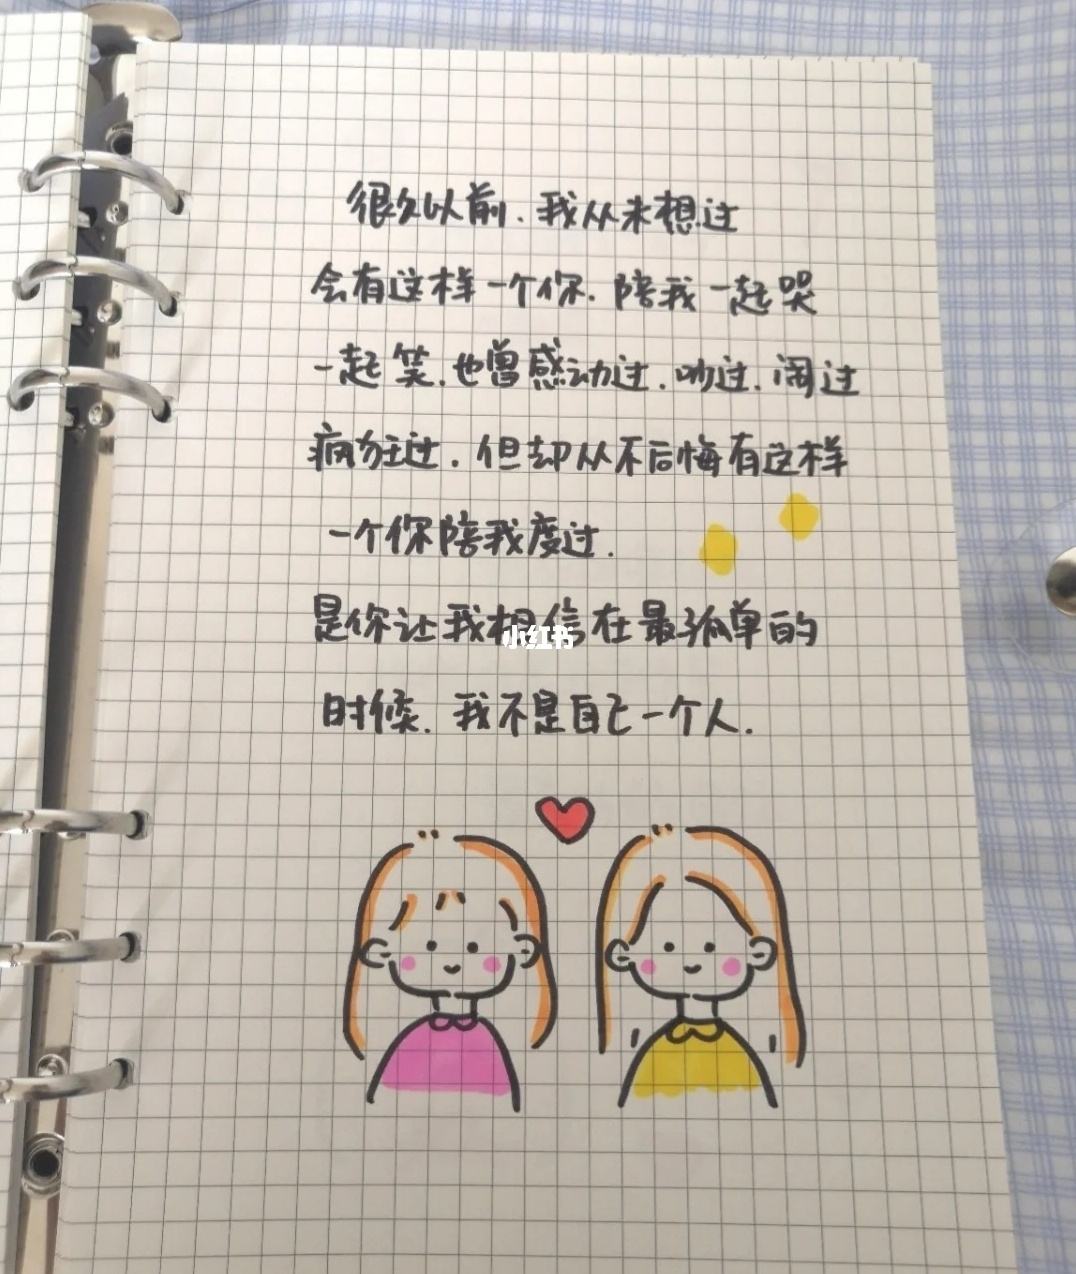 很久以前.我从未想过
会有这样一个你.陪我一起哭
一起笑.也曾感动过.吵过.闹过
疯狂过.但却从不后悔有这样
一个你陪我度过.
是你让我相信在最孤单的
小红书
时候.我不是自己一个人.